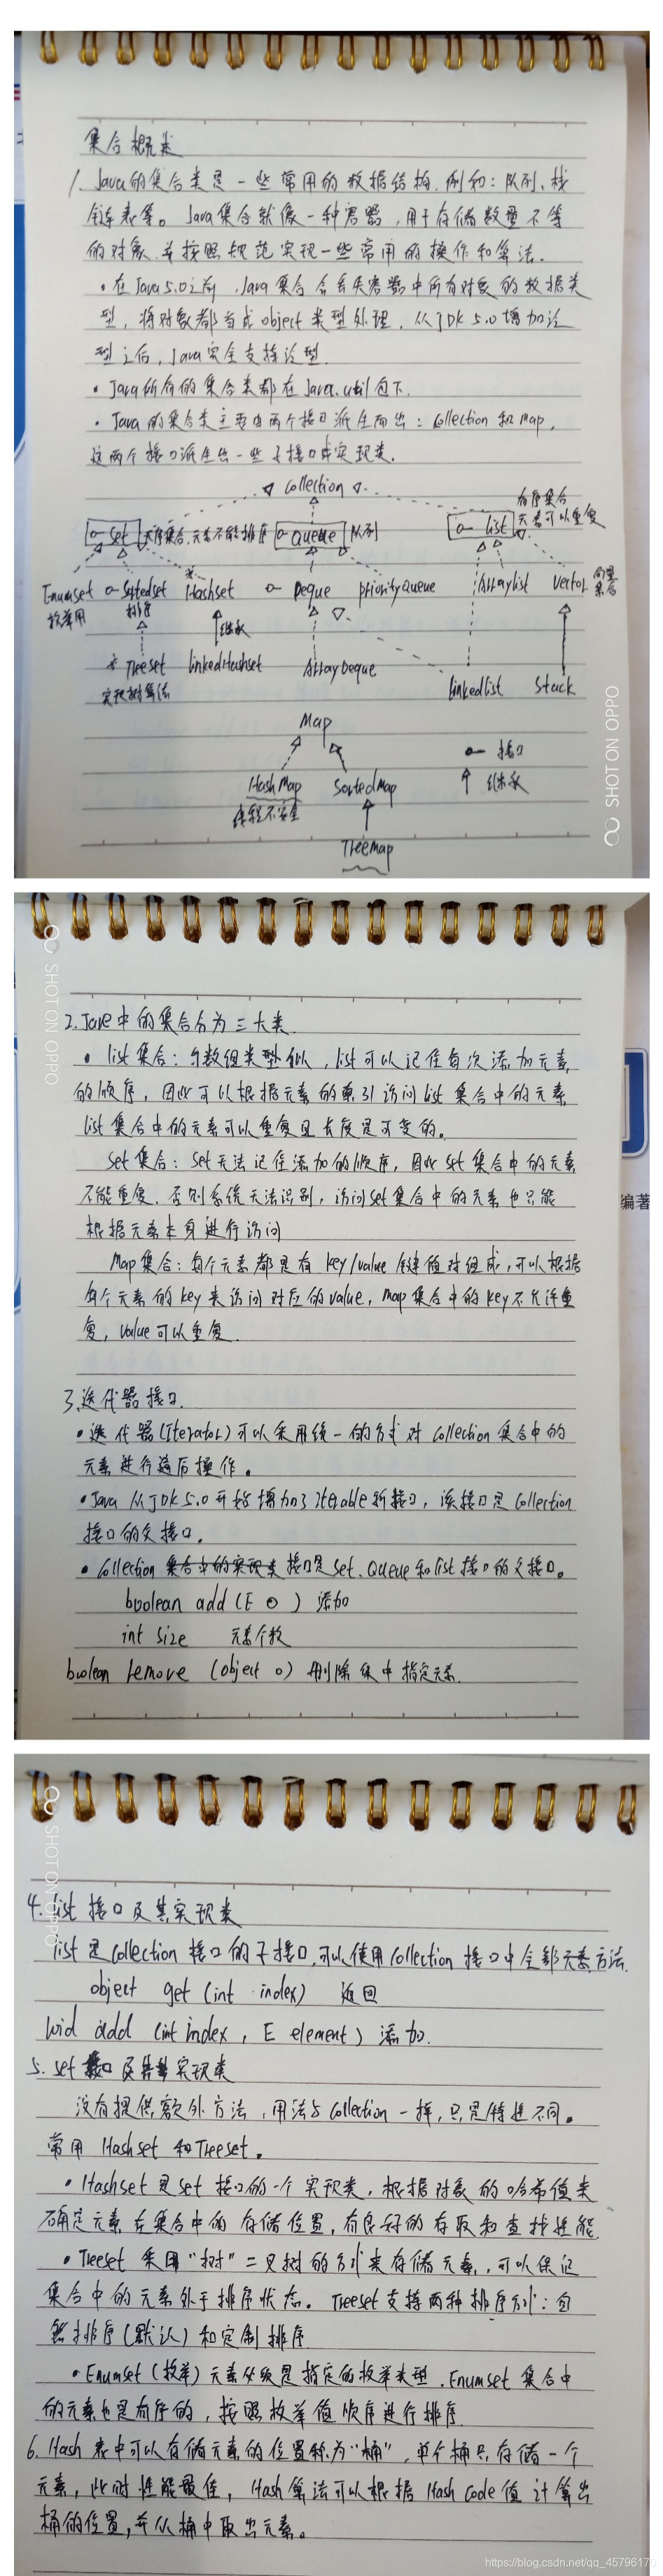 集合概述
1. Java的集合类是一些常用的数据结构.例如:队列、栈
链表等。Java集合就像一种容器,用于存储数量不等
的对象.并按照规范实现一些常用的操作和算法.
·在Java5.0之前,Java集合会丢失容器中所有对象的数据类
型,将对象都当成object类型处理,从JDK5.0增加泛
型之后,Java完全支持泛型.
·Java所有的集合类都在Java.util包下.
·Java的集合类主要由两个接口派生而出:Collection和Map,
这两个接口派生出一些子接口或实现类.
Collection
有序集合
元素可以重复
set 无序集合,元素不能排序 Queue 队列 list
Enumset Sortedset Hashset Deque priorityQueue Arraylist vector 向量集合
枚举用 排序 继承
Treeset linkedHashset ArrayDeque
实现树算法 linkedlist Stack
Map
接口
HashMap SortedMap 继承
线程不安全
TreeMap
SHOT ON OPPO
2.Java中的集合分为三大类
·list集合:与数组类型似,list可以记住每次添加元素
的顺序,因此可以根据元素的索引访问list集合中的元素
list集合中的元素可以重复且长度是可变的。
set集合:set无法记住添加的顺序,因此set集合中的元素
不能重复.否则系统无法识别,访问set集合中的元素也只能
根据元素本身进行访问
Map集合:每个元素都是有key/value键值对组成,可以根据
每个元素的key来访问对应的value,Map集合中的key不允许重
复,value可以重复.
编著
3.迭代器接口.
·迭代器(Iterator)可以采用统一的方式对Collection集合中的
元素进行遍历操作。
·Java从JDK5.0开始增加了Iterable新接口,该接口是Collection
接口的父接口。
·Collection集合中的实现类接口是set、Queue和list接口的父接口。
boolean add(E o) 添加
int size 元素个数
boolean remove (object o) 删除集中指定元素.
SHOT ON OPPO
4.list接口及其实现类
list是Collection接口的子接口,可以使用Collection接口中全部元素方法.
object get (int index) 返回
void add (int index, E element) 添加.
5. set接口及其实现类
没有提供额外方法,用法与Collection一样,只是特性不同。
常用Hashset和Treeset。
·Hashset是set接口的一个实现类,根据对象的哈希值来
确定元素在集合中的存储位置,有良好的存取和查找性能.
·Treeset采用"树"二叉树的方式来存储元素,可以保证
集合中的元素处于排序状态。Treeset支持两种排序方式:自
然排序(默认)和定制排序.
·Enumset(枚举)元素必须是指定的枚举类型.Enumset集合中
的元素也是有序的,按照枚举值顺序进行排序.
6. Hash表中可以存储元素的位置称为"桶",单个桶只存储一个
元素,此时性能最佳,Hash算法可以根据Hash Code值计算出
桶的位置,并从桶中取出元素。
SHOT ON OPPO
https://blog.csdn.net/qq_4579617